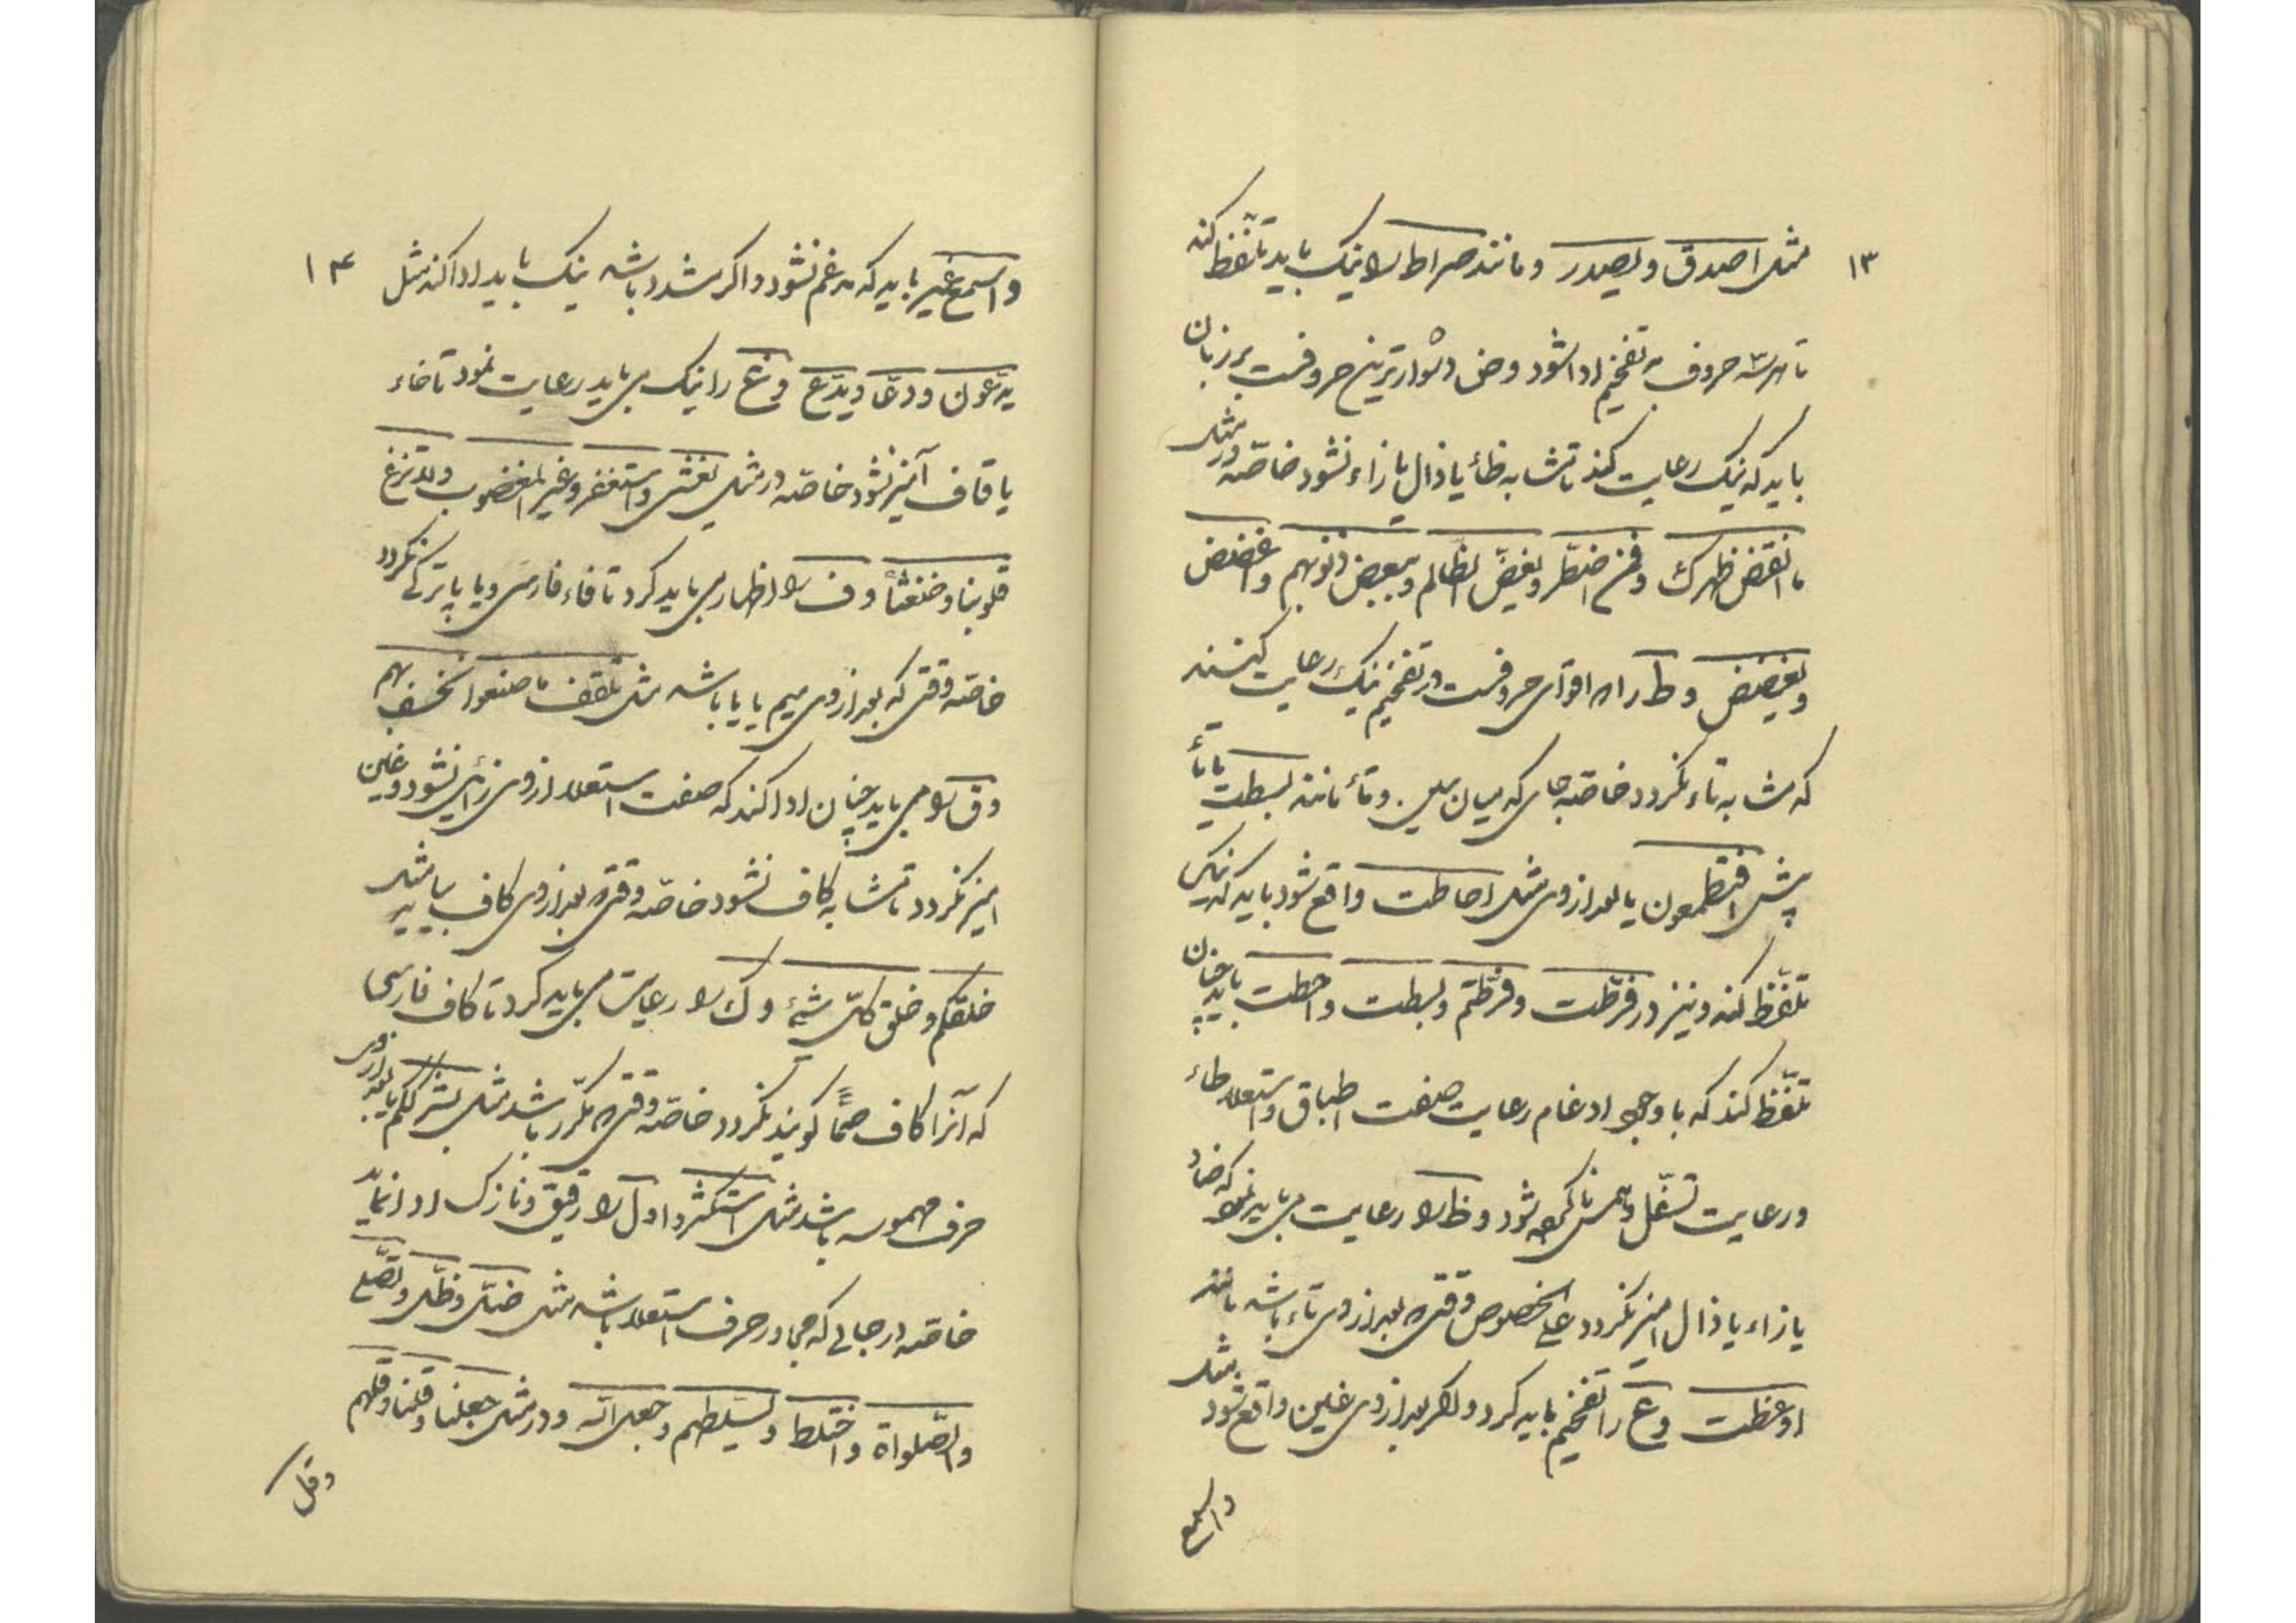 ۱۳
مثل اصدق و یصدر و مانند صراط را نیک باید تلفظ کند
تا هر سه حروف به تفخیم ادا شود و ض دشوارترین حروفست بر زبان
باید که نیک رعایت کند تا مشابه ظاء یا ذال یا زاء نشود خاصّه در مثل
ما انقض ظهرک و فمن اضطر و یعضّ الظّالم و ببعض ذنوبهم و اغضض
و یغضضن و ط را که اقوای حروفست در تفخیم نیک رعایت کنند
که مشابه تاء نگردد خاصّه جای که میان سین و تاء مانند بسطت یا تاء
پیش افتطمعون یا بعد از وی مثل احاطت واقع شود باید که نیک
تلفّظ کند و نیز در فرّطت و فرّطتم و بسطت و احطت باید چنان
تلفّظ کند که با وجود ادغام رعایت صفت اطباق و استعلاء طاء
و رعایت تسفّل و همس تا کرده شود و ظ را رعایت می باید نمود که ضاد
یا زاء یا ذال آمیز نگردد علی الخصوص وقتی که بعد از وی تاء باشد مانند
اوعظت و ع را تفخیم باید کرد و اگر بعد از وی غین واقع شود مثل
واسمع
۱۴
واسمع غیر باید که مدغم نشود و اگر مشدد باشد نیک باید ادا کند مثل
یدّعون و دعّا و یدّع و غ را نیک می باید رعایت نمود تا خاء
یا قاف آمیز نشود خاصّه در مثل یغشی و استغفر و غیر المغضوب و لا تزغ
قلوبنا و ضغثاً و ف را اظهار می باید کرد تا فاء فارسی و یا پا ترکی نگردد
خاصّه وقتی که بعد از وی میم یا با باشد مثل تلقف ما صنعوا نخسف بهم
و ق را می باید چنان ادا کند که صفت استعلا از وی زائل نشود و غین
آمیز نگردد تا مشابه کاف نشود خاصّه وقتی که بعد از وی کاف بیاید مثل
خلقکم و خلق کلّ شیءٍ و ک را رعایت می باید کرد تا کاف فارسی
که آنرا کاف صمّاً گویند نگردد خاصّه وقتی که مکرّر باشد مثل بشرککم یا بعد از وی
حرف مهموسه باشد مثل استکثر و ا و ل را رقیق و نازک ادا نماید
خاصّه در جائی که مجاور حرف استعلا باشد مثل ضلّ و ظلّ و لصّلح
والصّلواة و اختلط و لسلّطهم و جعل الله و در مثل جعلنا و قلنا و قلهم
و قل